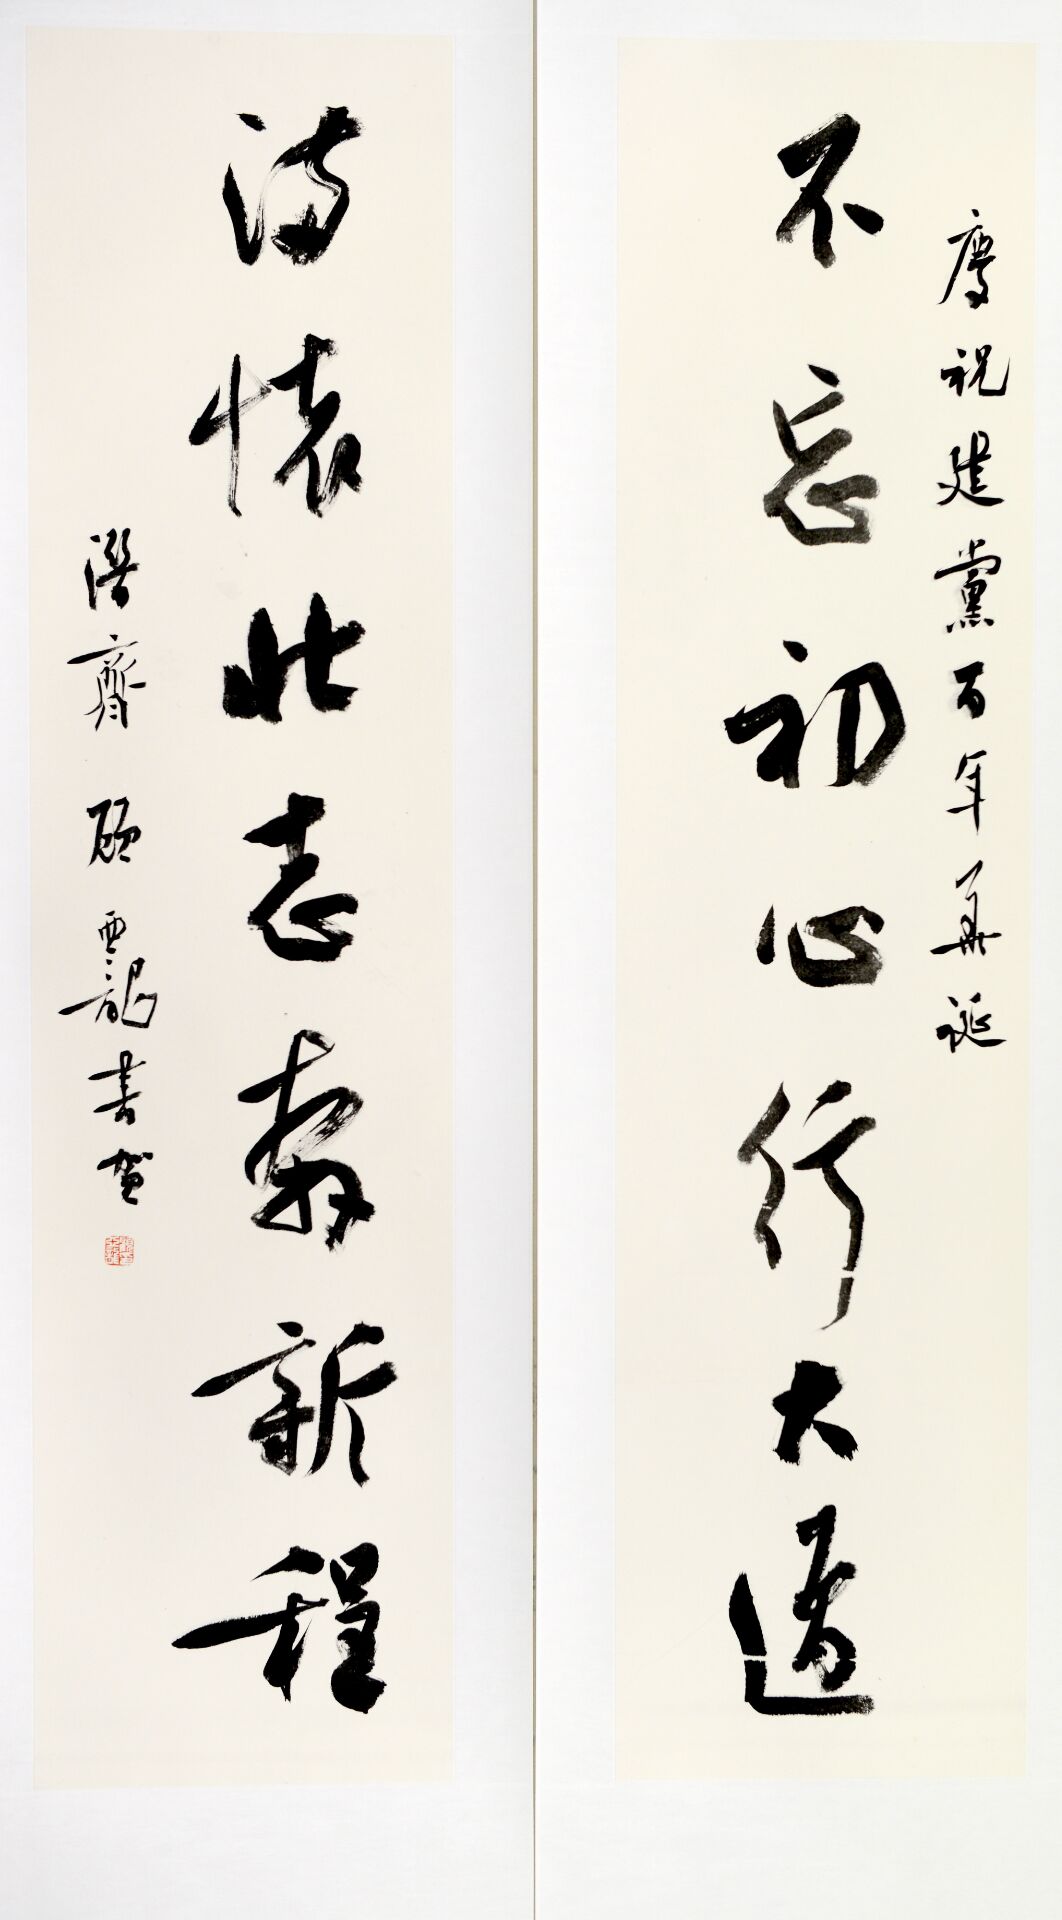 慶祝建黨百年華誕
不忘初心行大道
滿懷壯志奔新程
潛齋顧亞龍書賀